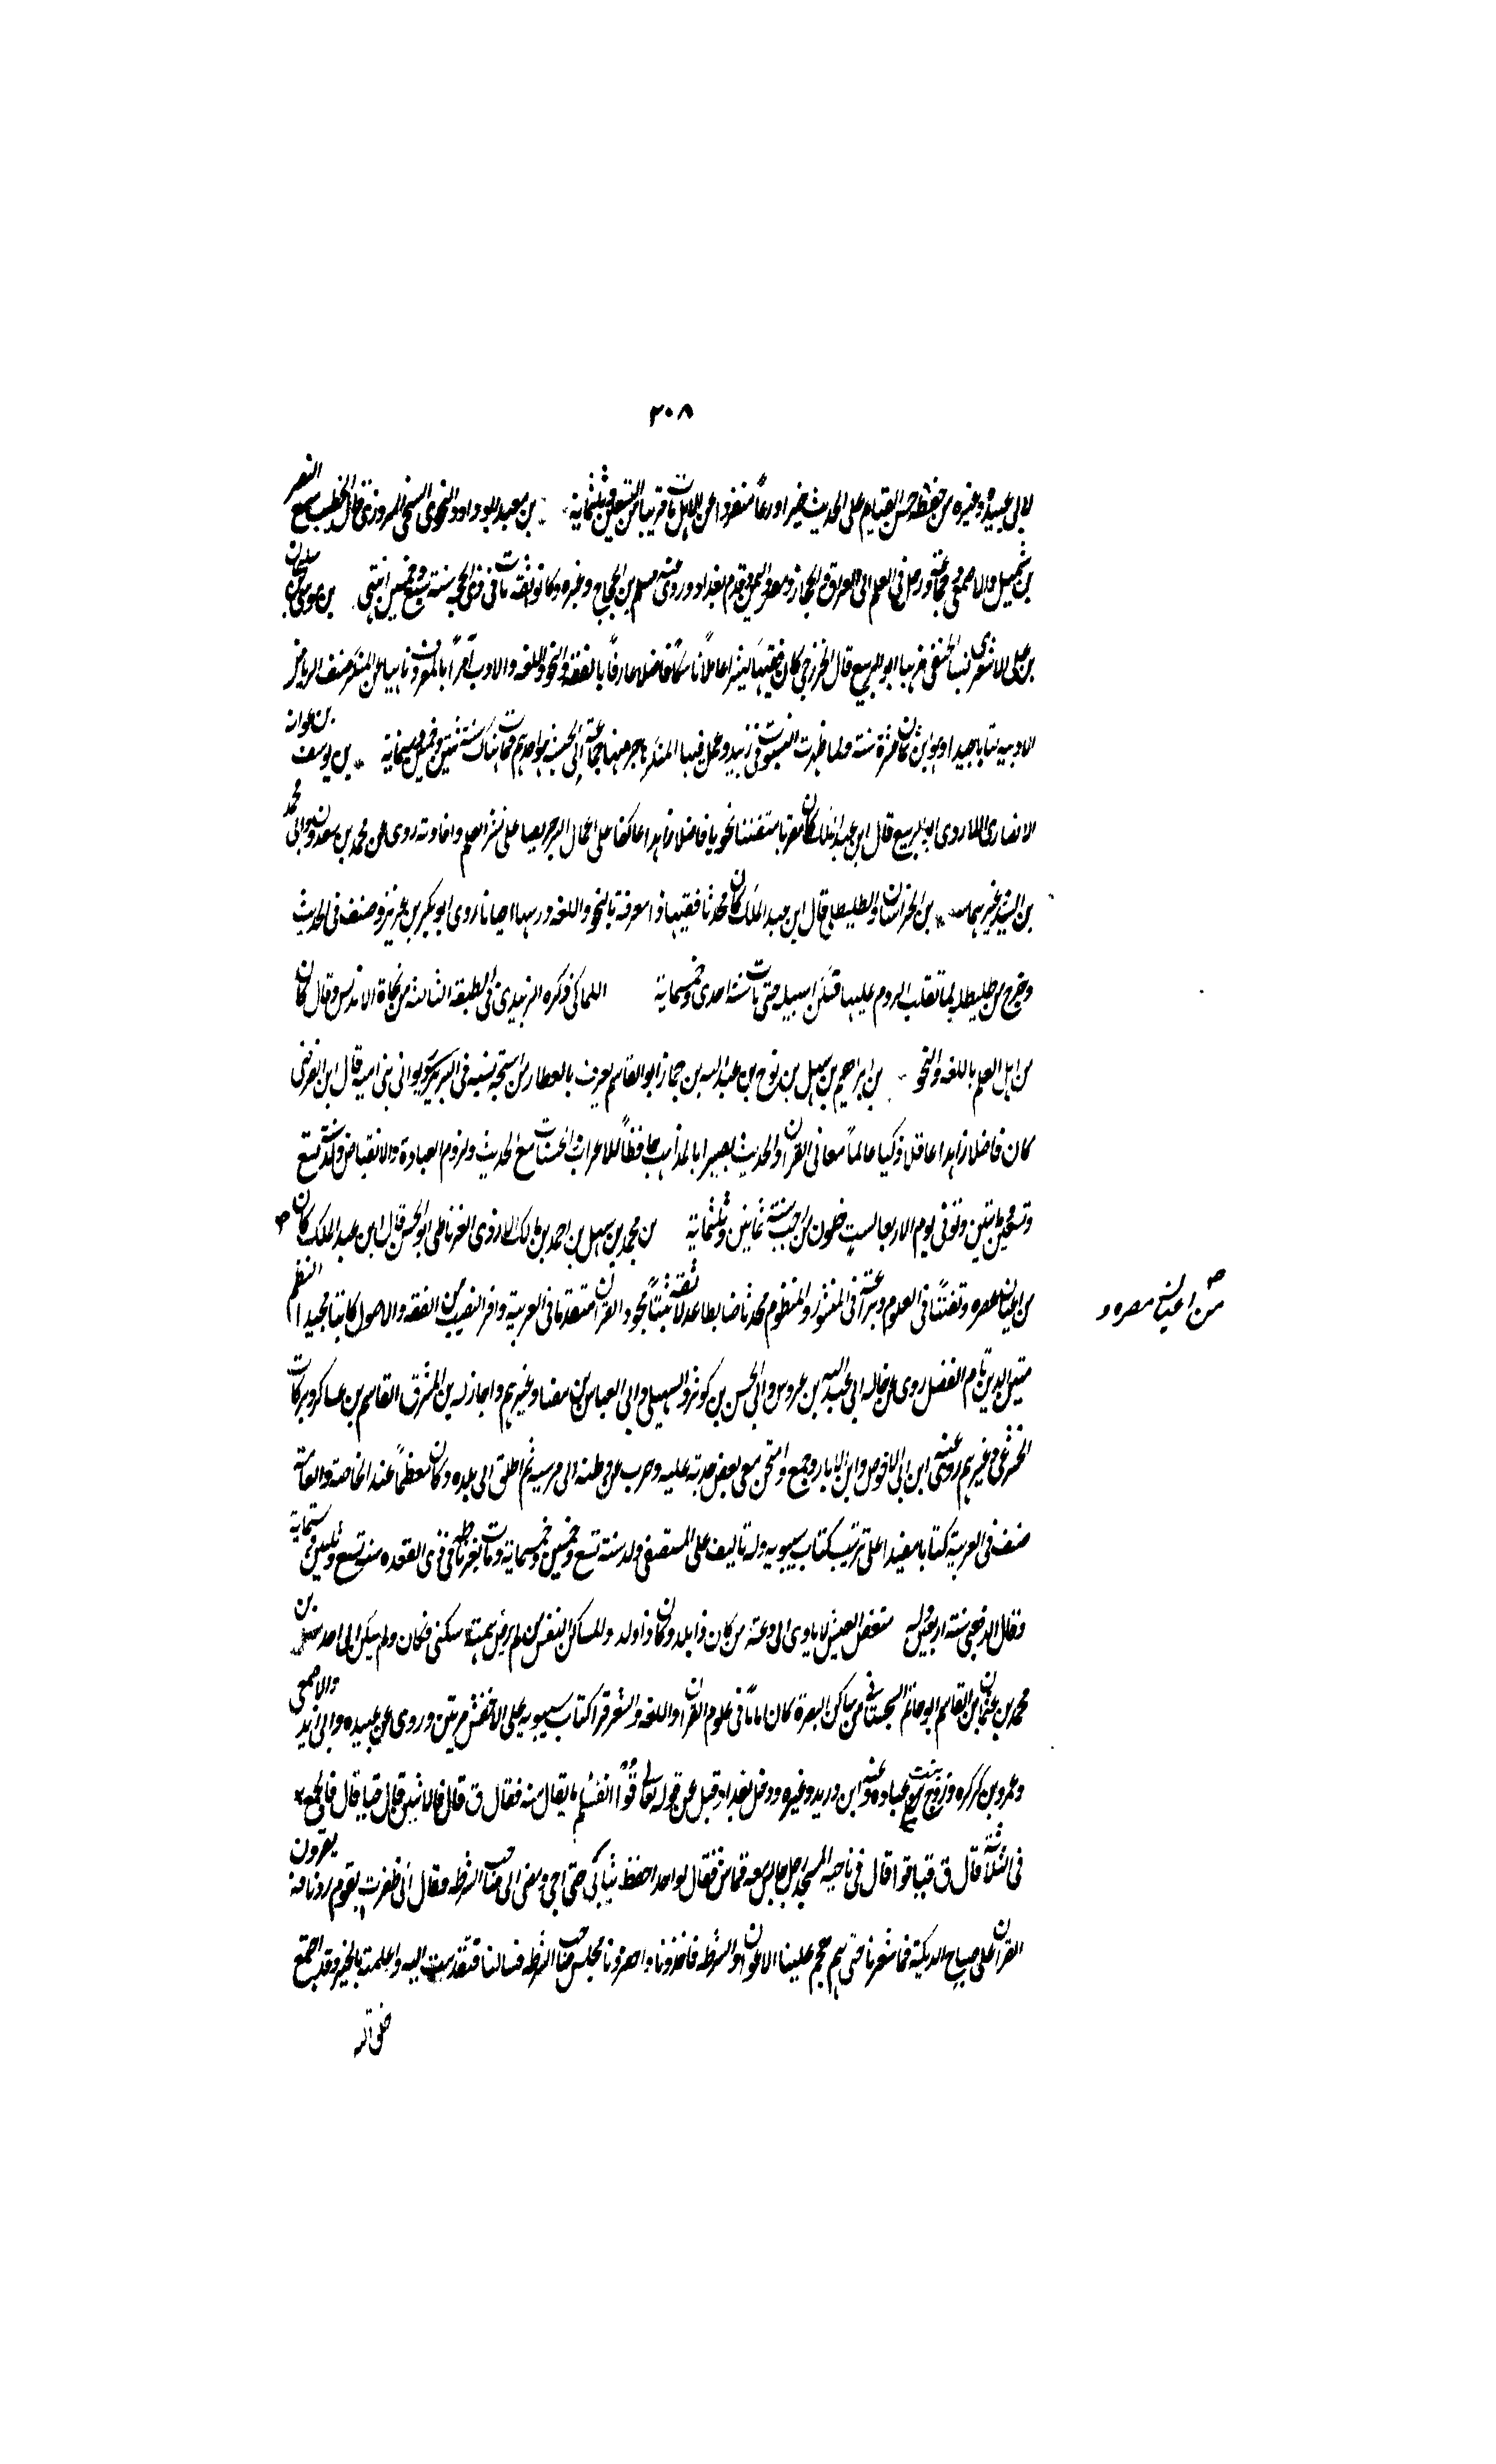 ٣٠٨
لابى عبيدة وغيره من حفظه حسن القيام على الحديث خيرا ورعاً منفردا عن الاهل مات قريبا من التسعين وثلثماية بن معبد ابو داود النحوى السنجى المروزى قال الخطيب سمع النضر
بن شميل والاصمعى وجماعة ورحل فى العلم الى العراق والحجاز ومصر واليمن وقدم بغداد وروى عنه مسلم بن الحجاج وغيره وكان ثقة مات فى ذى الحجة سنة سبع وخمسين انتهى بن موسى بن سليمان
بن على الاشعرى نسبا الحنفى مذهبا ابو الربيع قال الخزرجى كان فقيها كبيرا عاملاً ناسكاً فاضلا عارفاً بالفقه والنحو واللغه والادب آمراً بالمعروف ناهيا عن المنكر صنف الرياض
الادبيه كتابا جيدا وهو ابن ثمان عشرة سنة ولما ظهرت السبوت فى زبيد وعمل فيها المنكر هاجر منها جماعة الى الحبشة هو احدهم فمات هناك سنة ثنتين وخمسين وستماية بن يوسف بن عوانة
الانصارى اللاردى ابو الربيع قال ابن عبد الملك كان مقربا متفننا نحويا فاضلا زاهدا عاكفا على اعمال البر حريصا على نشر العلم وافادته روى عن محمد بن سعدون وابى محمد
بن السيد وغيرهما بن الحراسان والطليطلى قال ابن عبد الملك كان محدثا فقيها ذا معرفة بالنحو واللغه ودرسها احيانا روى ابو بكر بن عزيز وصنف فى الحديث
وخرج من طليطلة لما تغلب الروم عليها فسكن اشبيليه حتى مات سنة احدى وخمسماية اللماكى ذكره الزبيدى فى الطبقه الثالثه من نحاة الاندلس وقال كان
من اهل العلم باللغه والنحو بن ابراهيم بن سهل بن نوح بن عبد الله بن جماز ابو القاسم يعرف بالعطار من استجه نسبه فى البربر وهو يوالى بنى امية قال ابن الفرضى
كان فاضلا زاهدا عاقلا ذكيا عالماً معانى القران والحديث بصيرا بالمذاهب حافظاً للاعراب والحسنات مع الحديث ولزوم العبادة والانقباض ولد سنة تسع
وتسعين ومايتين وتوفى يوم الاربعا لست خلون من رجب سنة ثمانين وثلثماية بن محمد بن سهل بن احمد بن مالك الازدى الغرناطى ابو الحسن قال ابن عبد الملك كان
من اعيان مصره وتفننًا فى العلوم وبراعة فى المنثور والمنظوم محدثا ضابطا عدلا ثقة ثبتاً مجود القران متقدما فى العربية وافر النصيب من الفقه والاصول كاتبا مجيد النظم
من اعيان مصره و
متين الدين تام الفضل روى عن خاله ابى عبد الله بن عروس وابى الحسن بن كوثر والسهيلى وابى العباس بن مضا وغيرهم واجاز له من المشرق القاسم بن عساكر وبركات
الخشوعى وغيرهم روى عنه ابن ابى الاحوص وابن الابار وجمع وامتحن سعى بعض حسدته عليه وغرب عن وطنه الى مرسيه ثم اطلق الى بلده وكان معظماً عند الخاصة والعامة
صنف فى العربية كتابا مفيدا على ترتيب كتاب سيبويه وله تاليف على المستصفى ولد سنة تسع وخمسين وخمسماية ومات بغرناطه فى ذى القعده سنه تسع وثلثين وستماية
وقال الذهبى سنة اربعين وله منغص العيش لا ياوى الى دعة من كان ذا بلد وكان ذا ولد والساكن النفس من لم ترض همته سكنى مكان ولم يسكن الى احد سهل بن
محمد بن عثمان بن القاسم ابو حاتم السجستانى من ساكن البصرة كان اماماً فى علوم القران واللغه والشعر قرا كتاب سيبويه على الاخفش مرتين وروى عن عبيده وابى زيد والاصمعى
وعمرو بن كركره وزوج بنت روح عباده وعنه ابن دريد وغيره ودخل بغداد فقيل عن قوله تعالى قُوْا انفسكم ما يقال منه فقال ق قال فالاثنين قال قيا قال فالجمع
فى الثلاثة قال ق قيا قوا قال فى ناحيه المسجد رجل جالس معه قماش فقال لواحد احفظ ثيابى حتى اجى ومضى الى صاحب الشرطه فقال انى ظفرت بقوم زنادقة يقرون
القران على صياح الديكة فما شعرنا حتى هجم علينا الاعوان والشرطه فاخذونا واحضرونا مجلس صاحب الشرطه فسالنا فتقدمت اليه واعلمته بالخبر وقد اجتمع
خلق الله